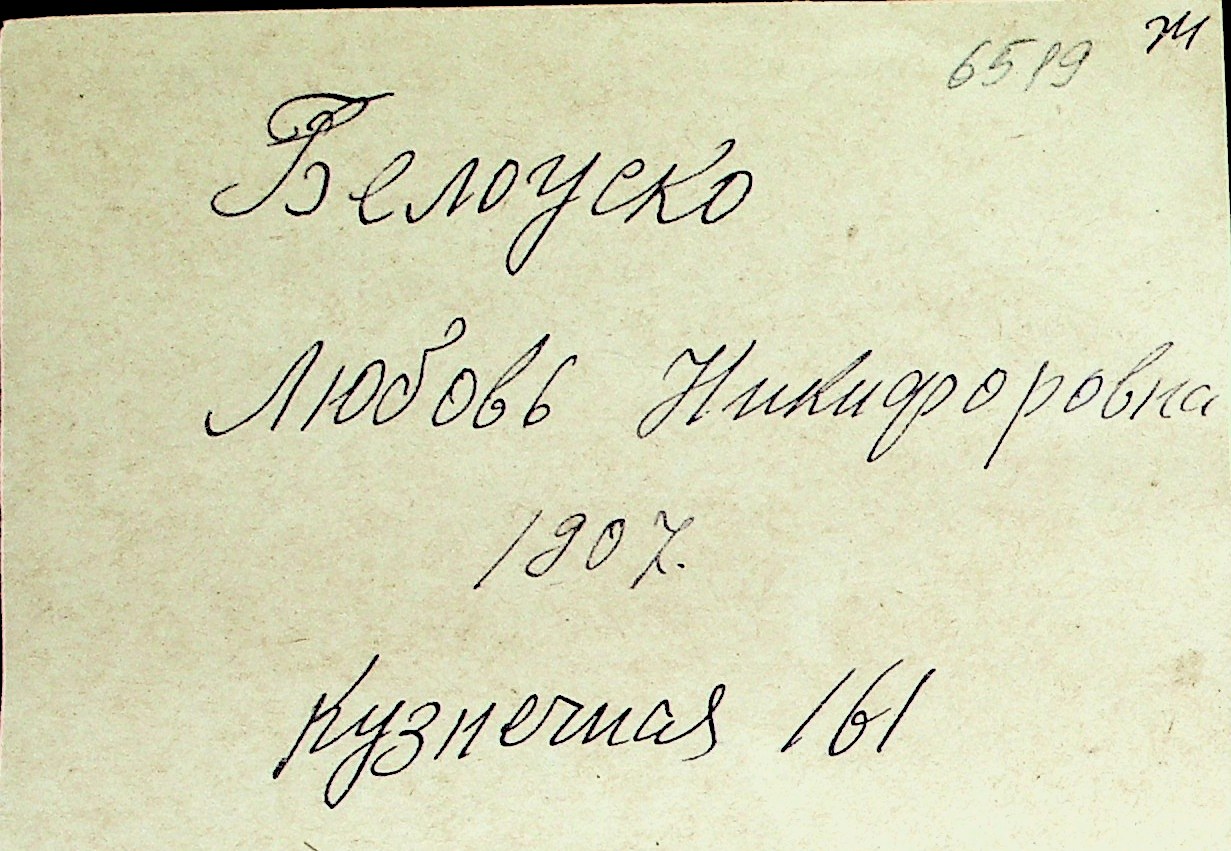 6519 Ж
Белоуско
Любовь Никифоровна
1907.
Кузнечная 161